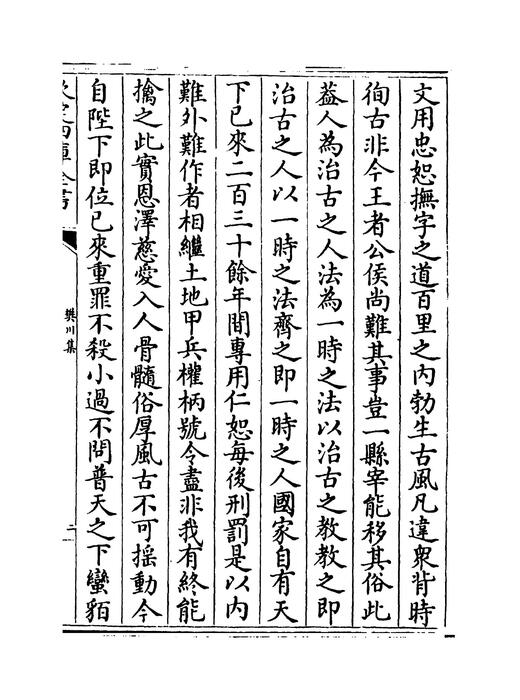 文用忠恕撫字之道百里之内勃生古風凡違衆背時
徇古非今王者公侯尚難其事豈一縣宰能移其俗此
葢人為治古之人法為一時之法以治古之教教之即
治古之人以一時之法齊之即一時之人國家自有天
下已來二百三十餘年間專用仁恕每後刑罰是以内
難外難作者相繼土地甲兵權柄號令盡非我有終能
擒之此實恩澤慈愛入人骨髓俗厚風古不可揺動今
自陛下即位已來重罪不殺小過不問普天之下蠻貊
欽定四庫全書
樊川集
二